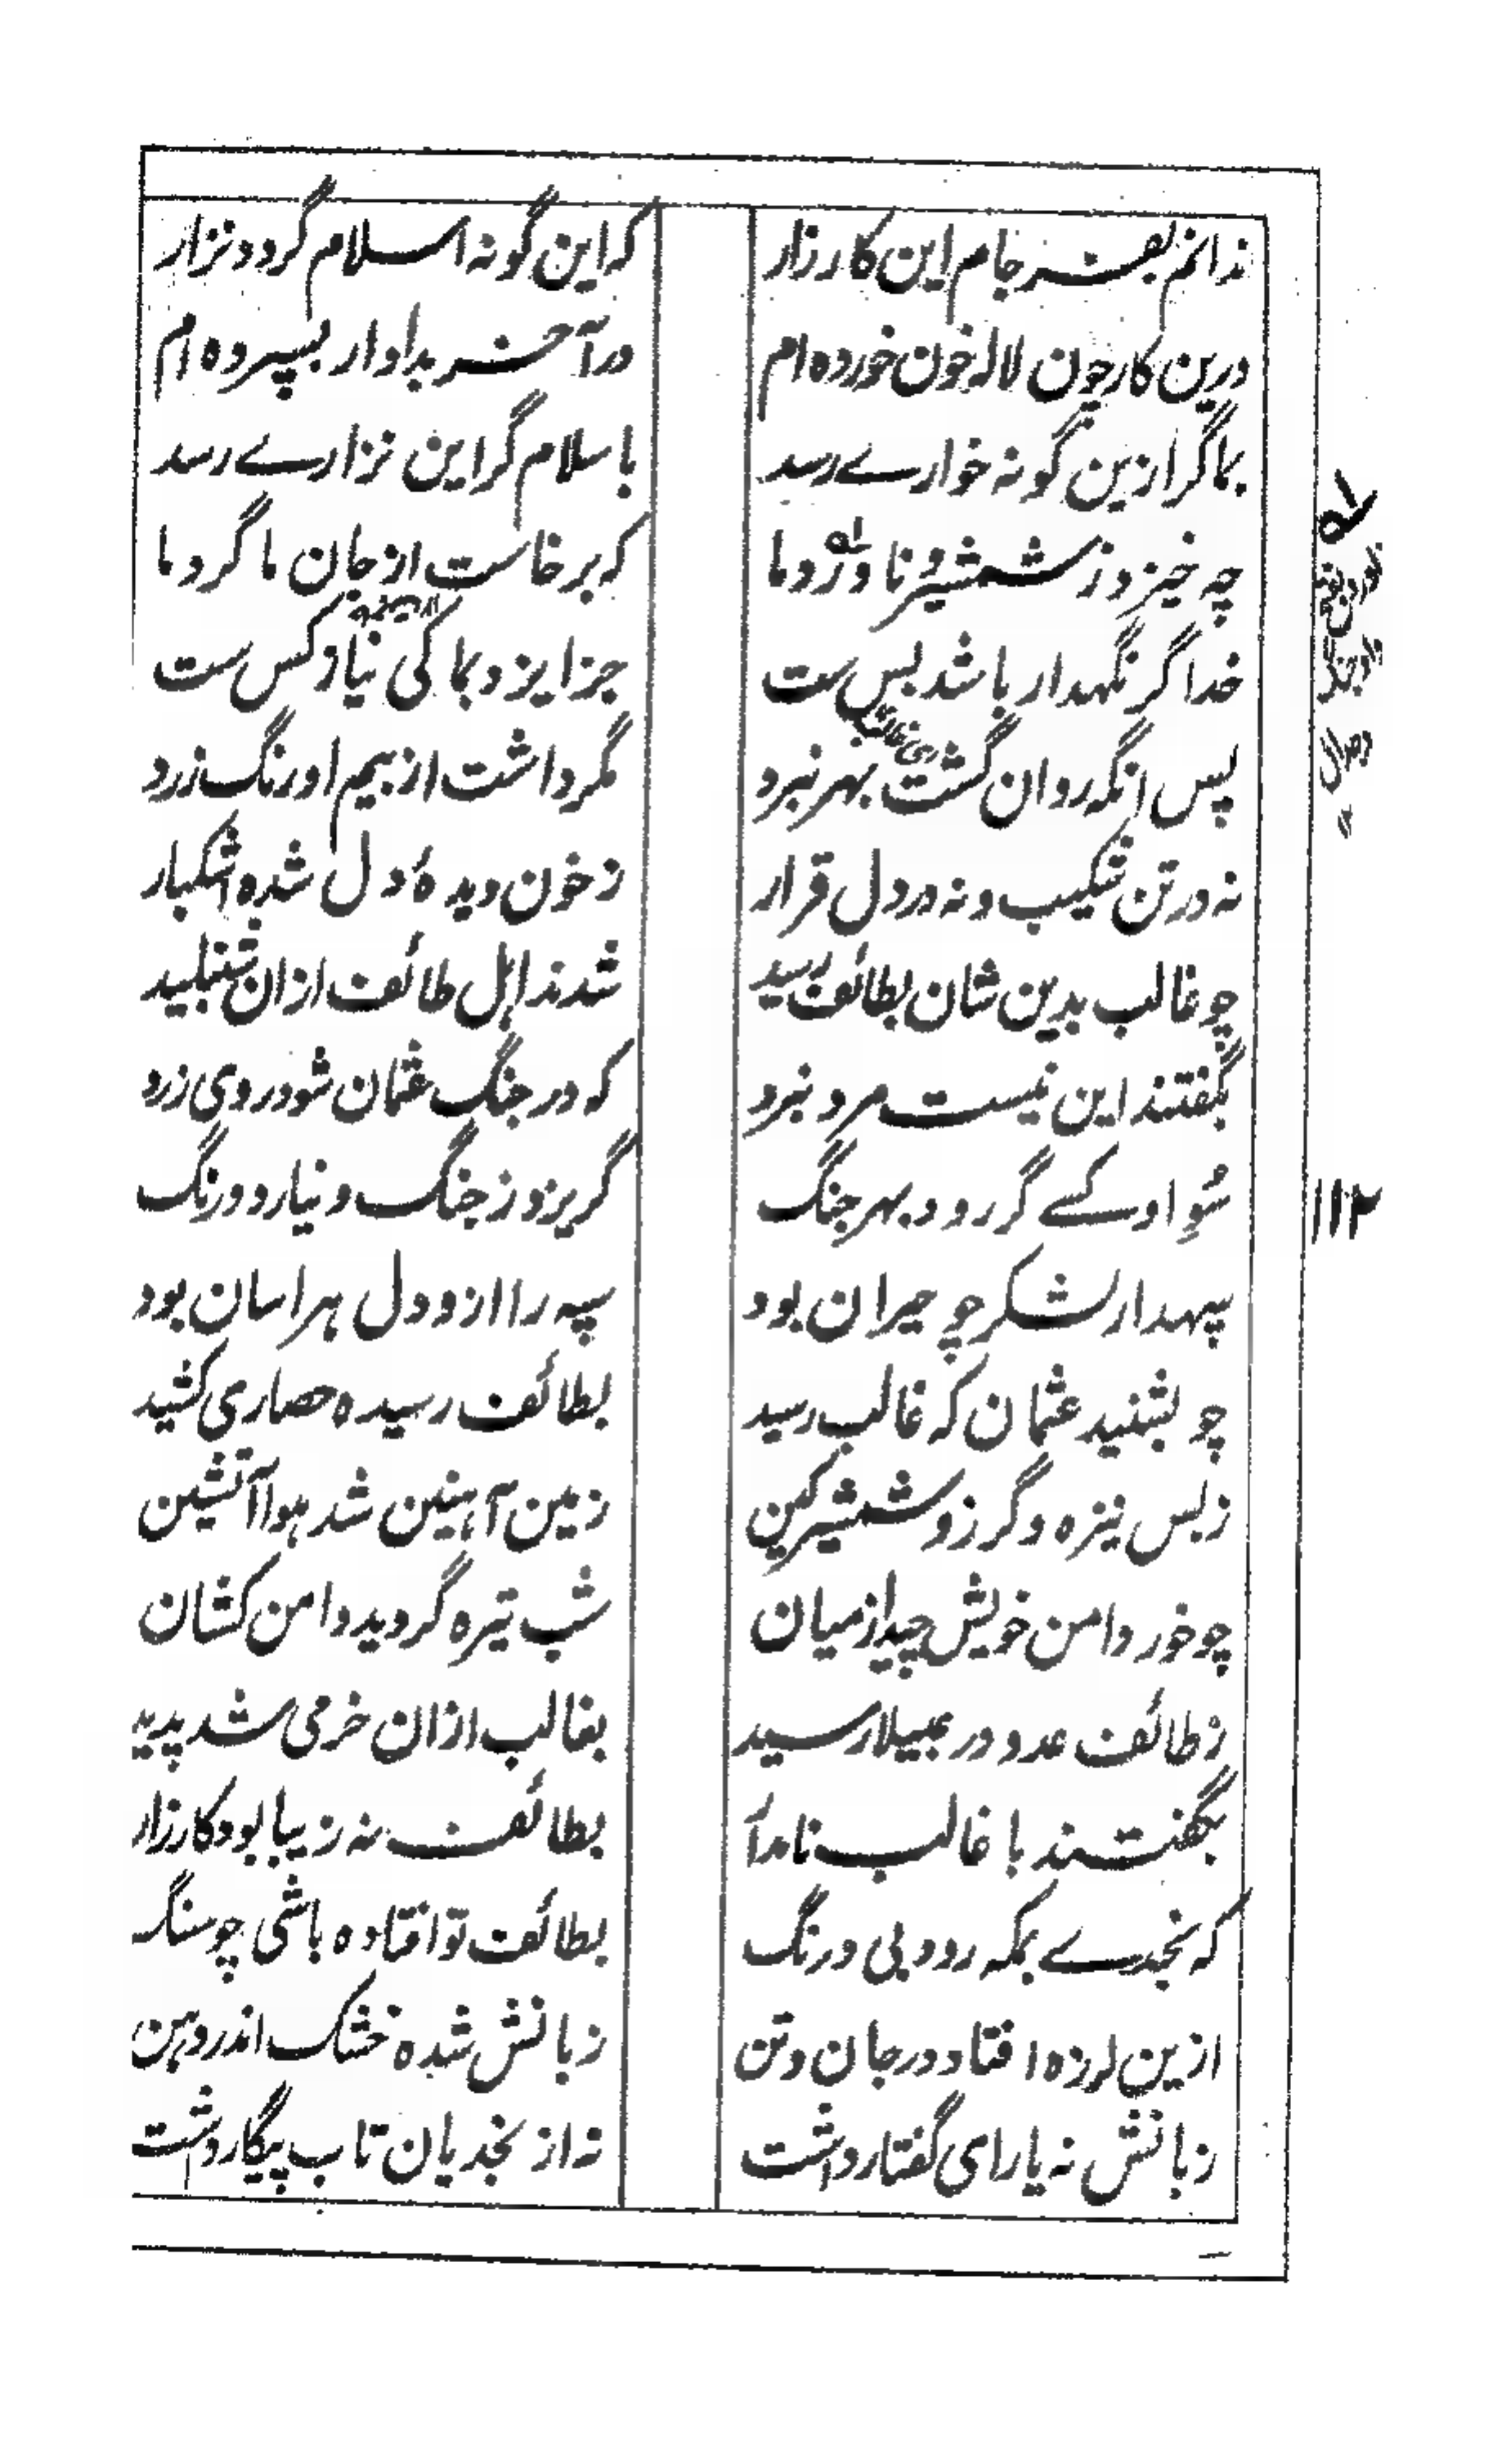 ندانم بفرجام این کارزار
که این گونه اسلام گردد نزار
درین کار چون لاله خون خورده ام
در آخر بداوار بسپرده ام
بما گر ازین گونه خوارے رسد
باسلام گر این نزارے رسد
چه خیزد ز شمشیر و ناورد ما
که برخاست از جان ما گرد ما
خدا گر نگهدار باشد بس ست
جز ایزد بما کی نیاو کس ست
پس انگه روان گشت بهر نبرد
مگر داشت از بیم او رنگ زرد
نه در تن شکیب و نه در دل قرار
ز خون دیدهٔ دل شده اشکبار
چو غالب بدین شان بطائف رسید
شدند اهل طائف ازان شنبلید
بگفتند این نیست مرد نبرد
که در جنگ عثمان شود روی زرد
سُوِ او کسے گر رود بهر جنگ
گریزد ز جنگ و نیارد درنگ
سپهدار لشکر چو حیران بود
سپه را ازو دل هراسان بود
چو بشنید عثمان که غالب رسید
بطائف رسیده حصاری کشید
ز بس نیزه و گرز و شمشیر کین
زمین آهنین شد هوا آتشین
چو خور دامن خویش چید از میان
شب تیره گردید دامن کشان
ز طائف عدو در عبیلا رسید
بغالب ازان خرمی شد پدید
بگفتند با غالب نامدار
بطائف نه زیبا بود کارزار
که نجدے بمکه رود بی درنگ
بطائف تو افتاده باشی چو سنگ
ازین لرزه افتاد در جان و تن
زبانش شده خشک اندر دهن
زبانش نه یارای گفتار داشت
نه از نجدیان تاب پیکار داشت
۱۱۲